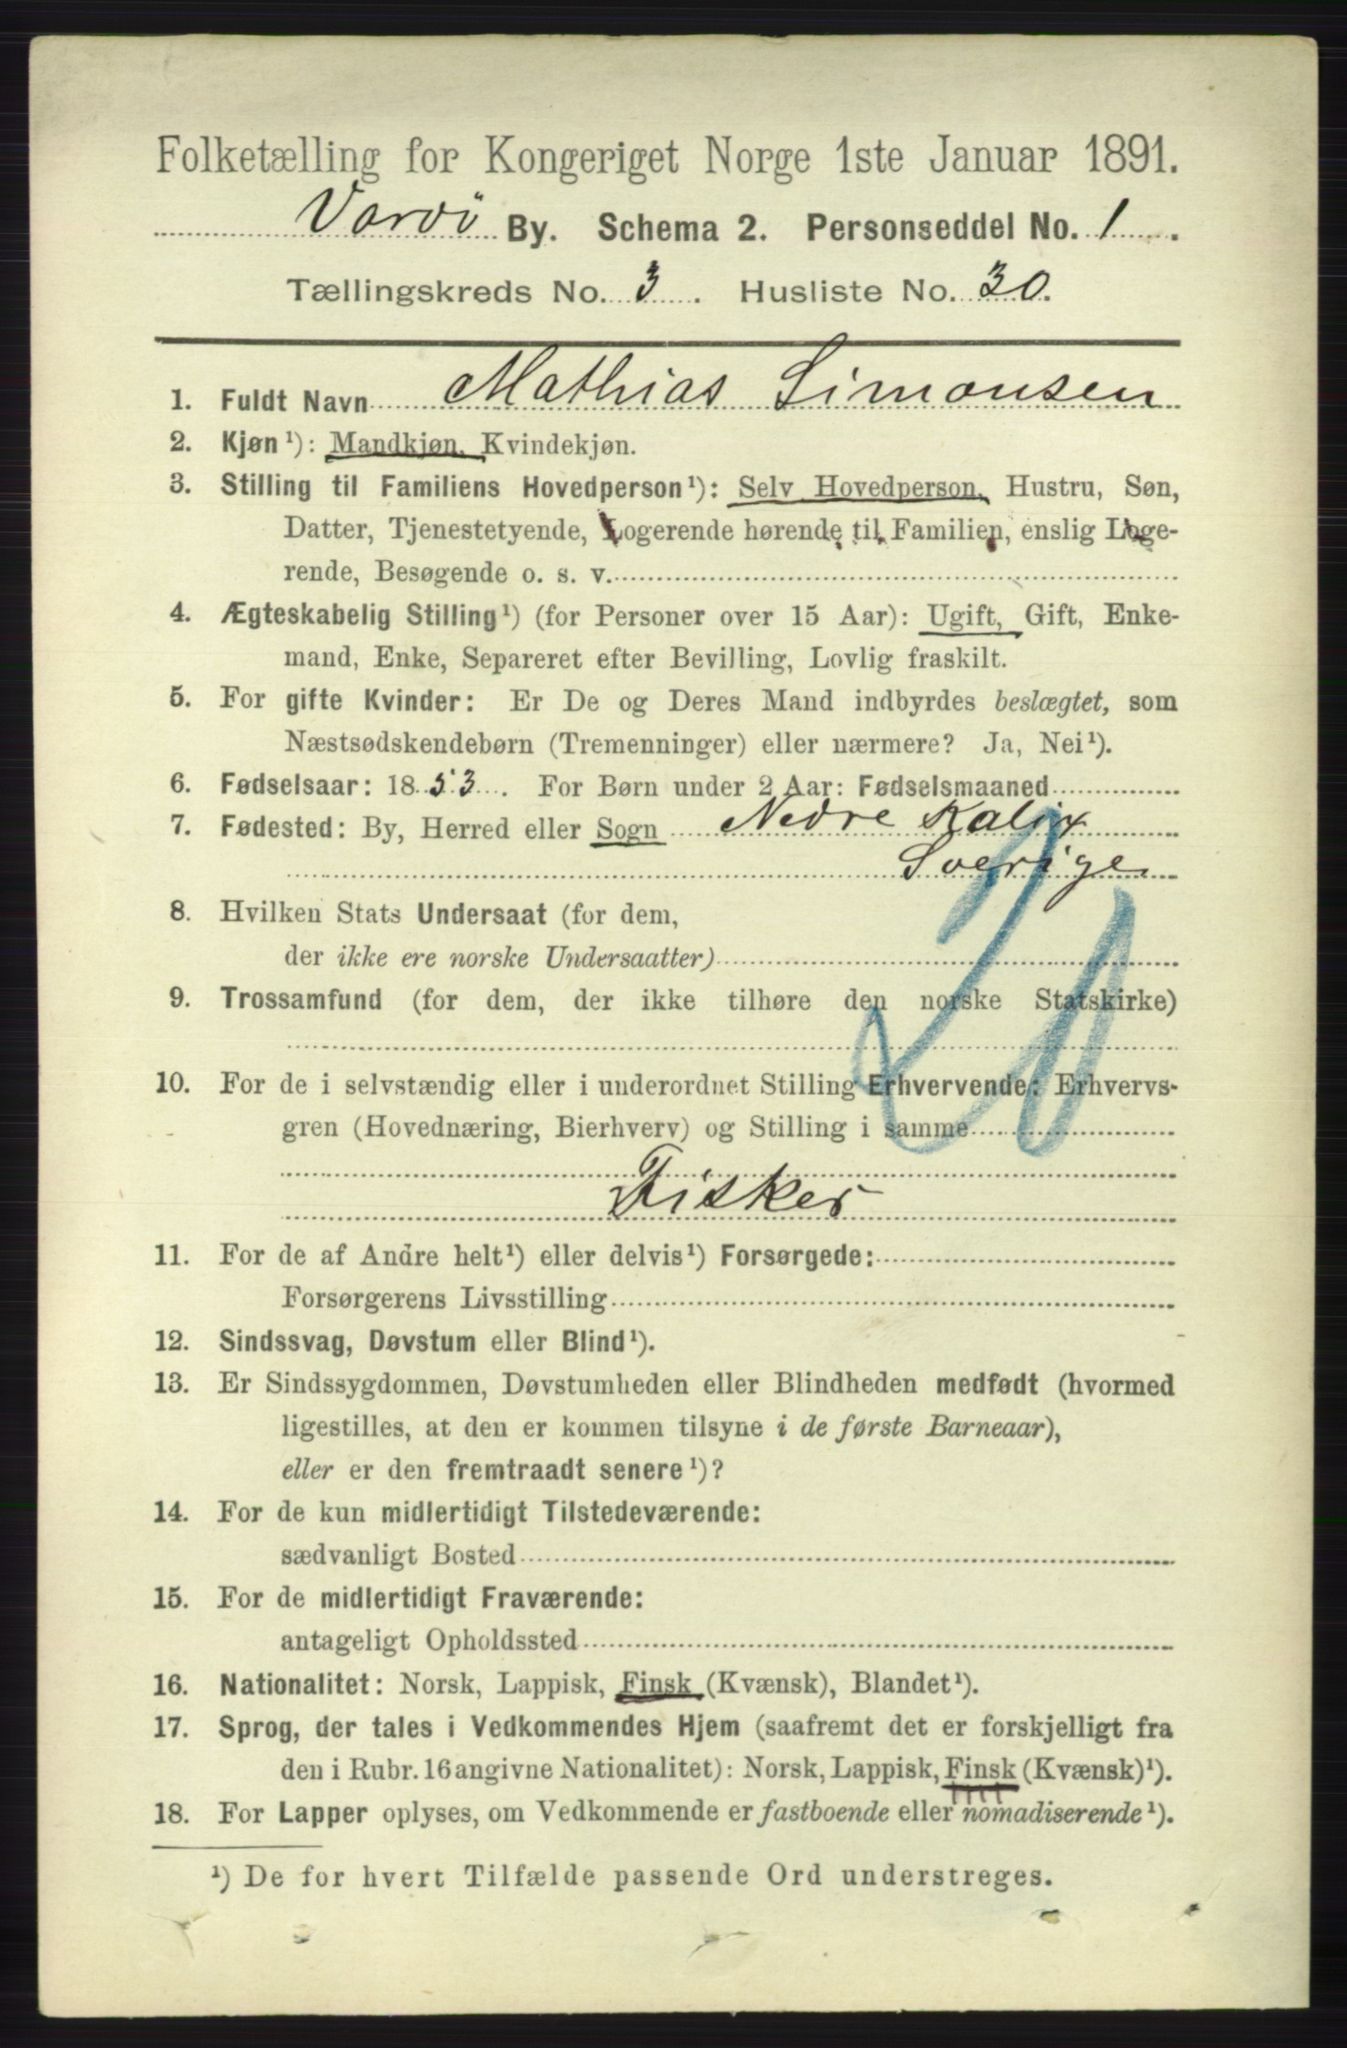 Folketælling for Kongeriget Norge 1ste Januar 1891.
Vardö By. Schema 2. Personseddel No. 1.
Tællingskreds No. 3. Husliste No. 30.
1. Fuldt Navn Mathias Simonsen
2. Kjøn¹): Mandkjøn, Kvindekjøn.
3. Stilling til Familiens Hovedperson¹): Selv Hovedperson, Hustru, Søn,
Datter, Tjenestetyende, Logerende hørende til Familien, enslig Loge-
rende, Besøgende o. s. v.
4. Ægteskabelig Stilling¹) (for Personer over 15 Aar): Ugift, Gift, Enke-
mand, Enke, Separeret efter Bevilling, Lovlig fraskilt.
5. For gifte Kvinder: Er De og Deres Mand indbyrdes beslægtet, som
Næstsødskendebørn (Tremenninger) eller nærmere? Ja, Nei¹).
6. Fødselsaar: 1853. For Børn under 2 Aar: Fødselsmaaned
7. Fødested: By, Herred eller Sogn Nedre Kalix
Sverige
20
8. Hvilken Stats Undersaat (for dem,
der ikke ere norske Undersaatter)
9. Trossamfund (for dem, der ikke tilhøre den norske Statskirke)
10. For de i selvstændig eller i underordnet Stilling Erhvervende: Erhvervs-
gren (Hovednæring, Bierhverv) og Stilling i samme
Fisker
11. For de af Andre helt¹) eller delvis¹) Forsørgede:
Forsørgerens Livsstilling
12. Sindssvag, Døvstum eller Blind¹).
13. Er Sindssygdommen, Døvstumheden eller Blindheden medfødt (hvormed
ligestilles, at den er kommen tilsyne i de første Barneaar),
eller er den fremtraadt senere¹)?
14. For de kun midlertidigt Tilstedeværende:
sædvanligt Bosted
15. For de midlertidigt Fraværende:
antageligt Opholdssted
16. Nationalitet: Norsk, Lappisk, Finsk (Kvænsk), Blandet¹).
17. Sprog, der tales i Vedkommendes Hjem (saafremt det er forskjelligt fra
den i Rubr. 16 angivne Nationalitet): Norsk, Lappisk, Finsk (Kvænsk)¹).
18. For Lapper oplyses, om Vedkommende er fastboende eller nomadiserende¹).
¹) De for hvert Tilfælde passende Ord understreges.